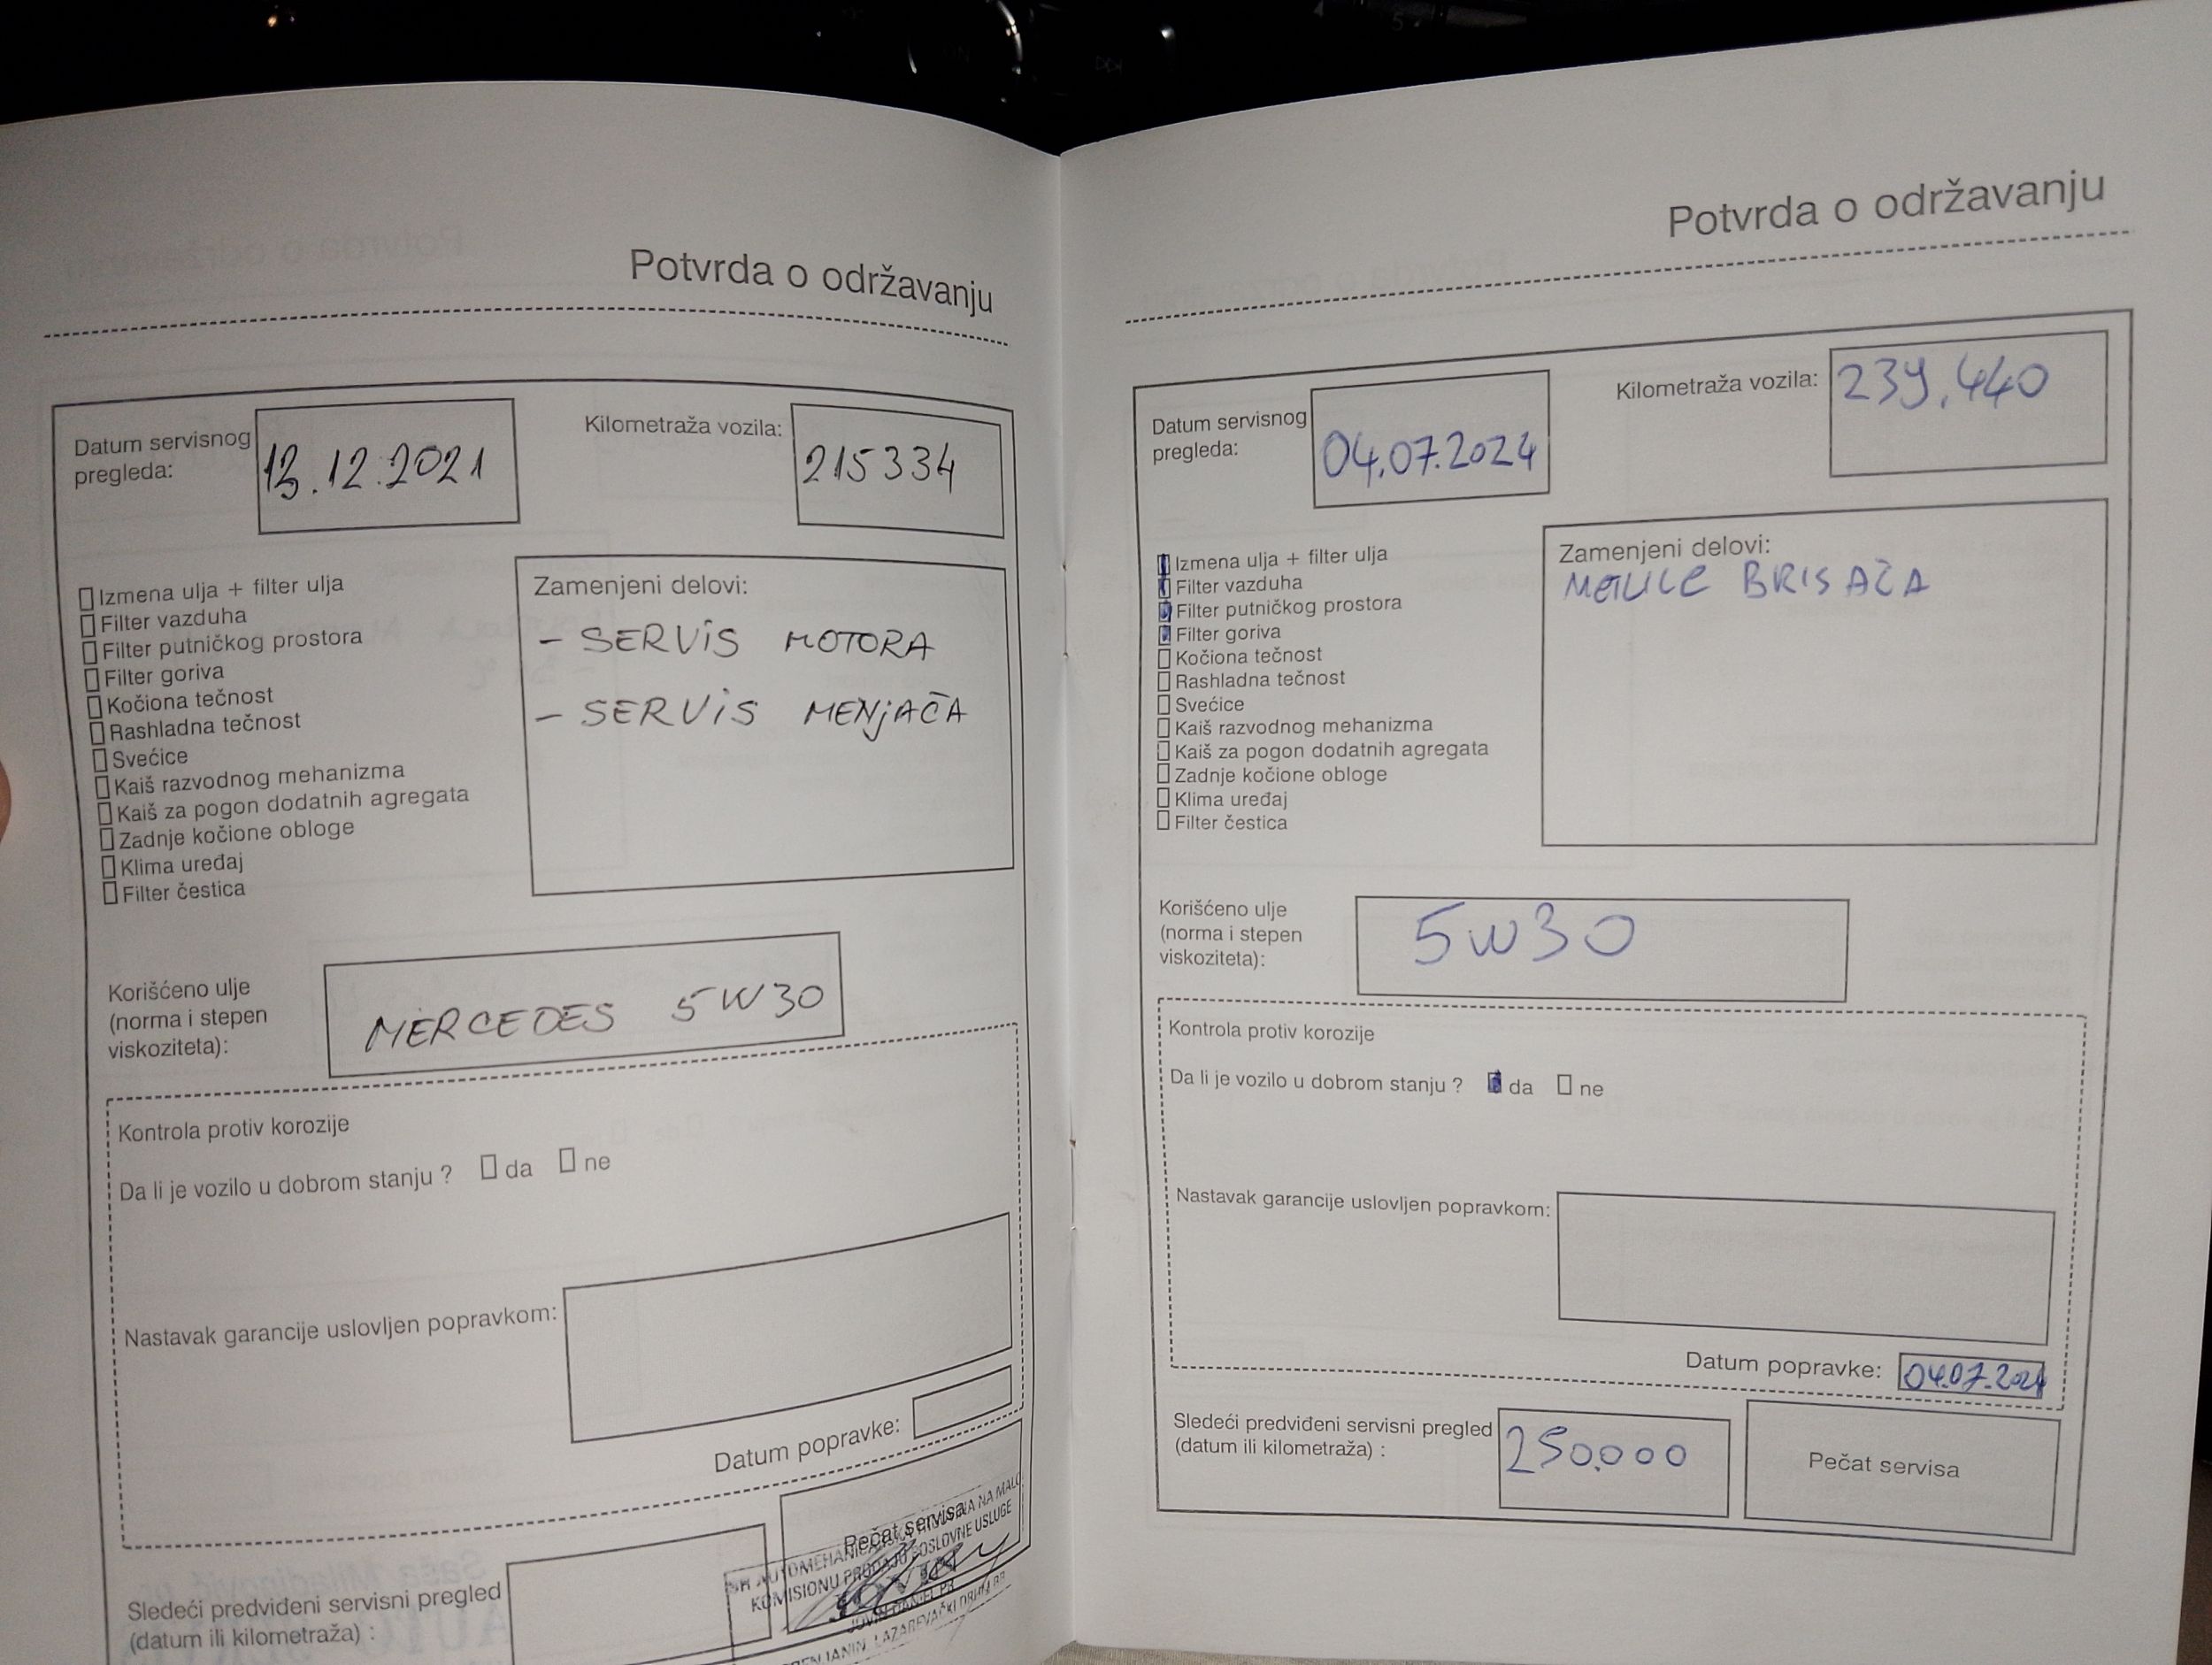 Potvrda o održavanju
Datum servisnog
pregleda:
13.12.2021
Kilometraža vozila:
215334
Izmena ulja + filter ulja
Filter vazduha
Filter putničkog prostora
Filter goriva
Kočiona tečnost
Rashladna tečnost
Svećice
Kaiš razvodnog mehanizma
Kaiš za pogon dodatnih agregata
Zadnje kočione obloge
Klima uređaj
Filter čestica
Zamenjeni delovi:
- SERVIS MOTORA
- SERVIS MENJAČA
Korišćeno ulje
(norma i stepen
viskoziteta):
MERCEDES 5W30
Kontrola protiv korozije
Da li je vozilo u dobrom stanju ? da ne
Nastavak garancije uslovljen popravkom:
Datum popravke:
Sledeći predviđeni servisni pregled
(datum ili kilometraža) :
Pečat servisa
NA MALO
KOMISIONU PRODAJU POSLOVNE USLUGE
LAZAREVAČKI
Potvrda o održavanju
Datum servisnog
pregleda:
04.07.2024
Kilometraža vozila:
239.440
Izmena ulja + filter ulja
Filter vazduha
Filter putničkog prostora
Filter goriva
Kočiona tečnost
Rashladna tečnost
Svećice
Kaiš razvodnog mehanizma
Kaiš za pogon dodatnih agregata
Zadnje kočione obloge
Klima uređaj
Filter čestica
Zamenjeni delovi:
METLICE BRISAČA
Korišćeno ulje
(norma i stepen
viskoziteta):
5W30
Kontrola protiv korozije
Da li je vozilo u dobrom stanju ? da ne
Nastavak garancije uslovljen popravkom:
Datum popravke:
04.07.2024
Sledeći predviđeni servisni pregled
(datum ili kilometraža) :
250.000
Pečat servisa